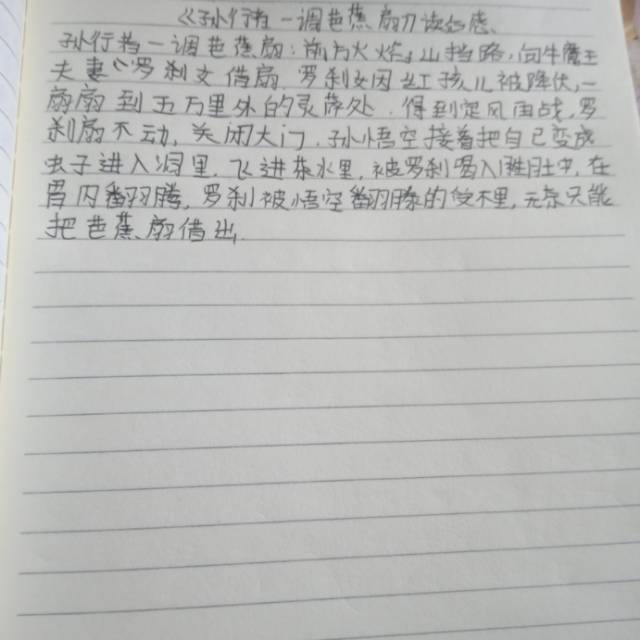 《孙行者一调芭蕉扇》读后感
孙行者一调芭蕉扇:前方火焰山挡路,向牛魔王
夫妻罗刹女借扇,罗刹女因红孩儿被降伏,一
扇扇到五万里外的灵萨处,得到定风面战,罗
刹扇不动,关闭大门,孙悟空接着把自己变成
虫子进入洞里,飞进茶水里,被罗刹喝入肚中,在
胃内翻腾,罗刹被悟空翻腾的受不里,无奈只能
把芭蕉扇借出,